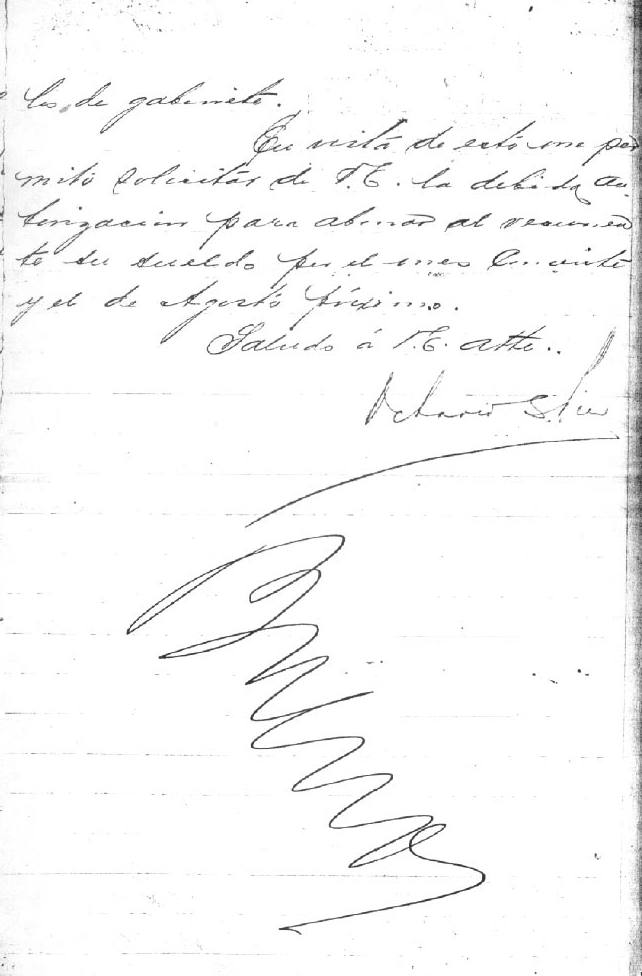 les de gabinete.
En vista de esto me per
mito solicitar de V.E. la debida au
torización para abonar al recurren
te su sueldo por el mes Corriente
y el de Agosto próximo.
Saludo á V.E. atte..
Octavio